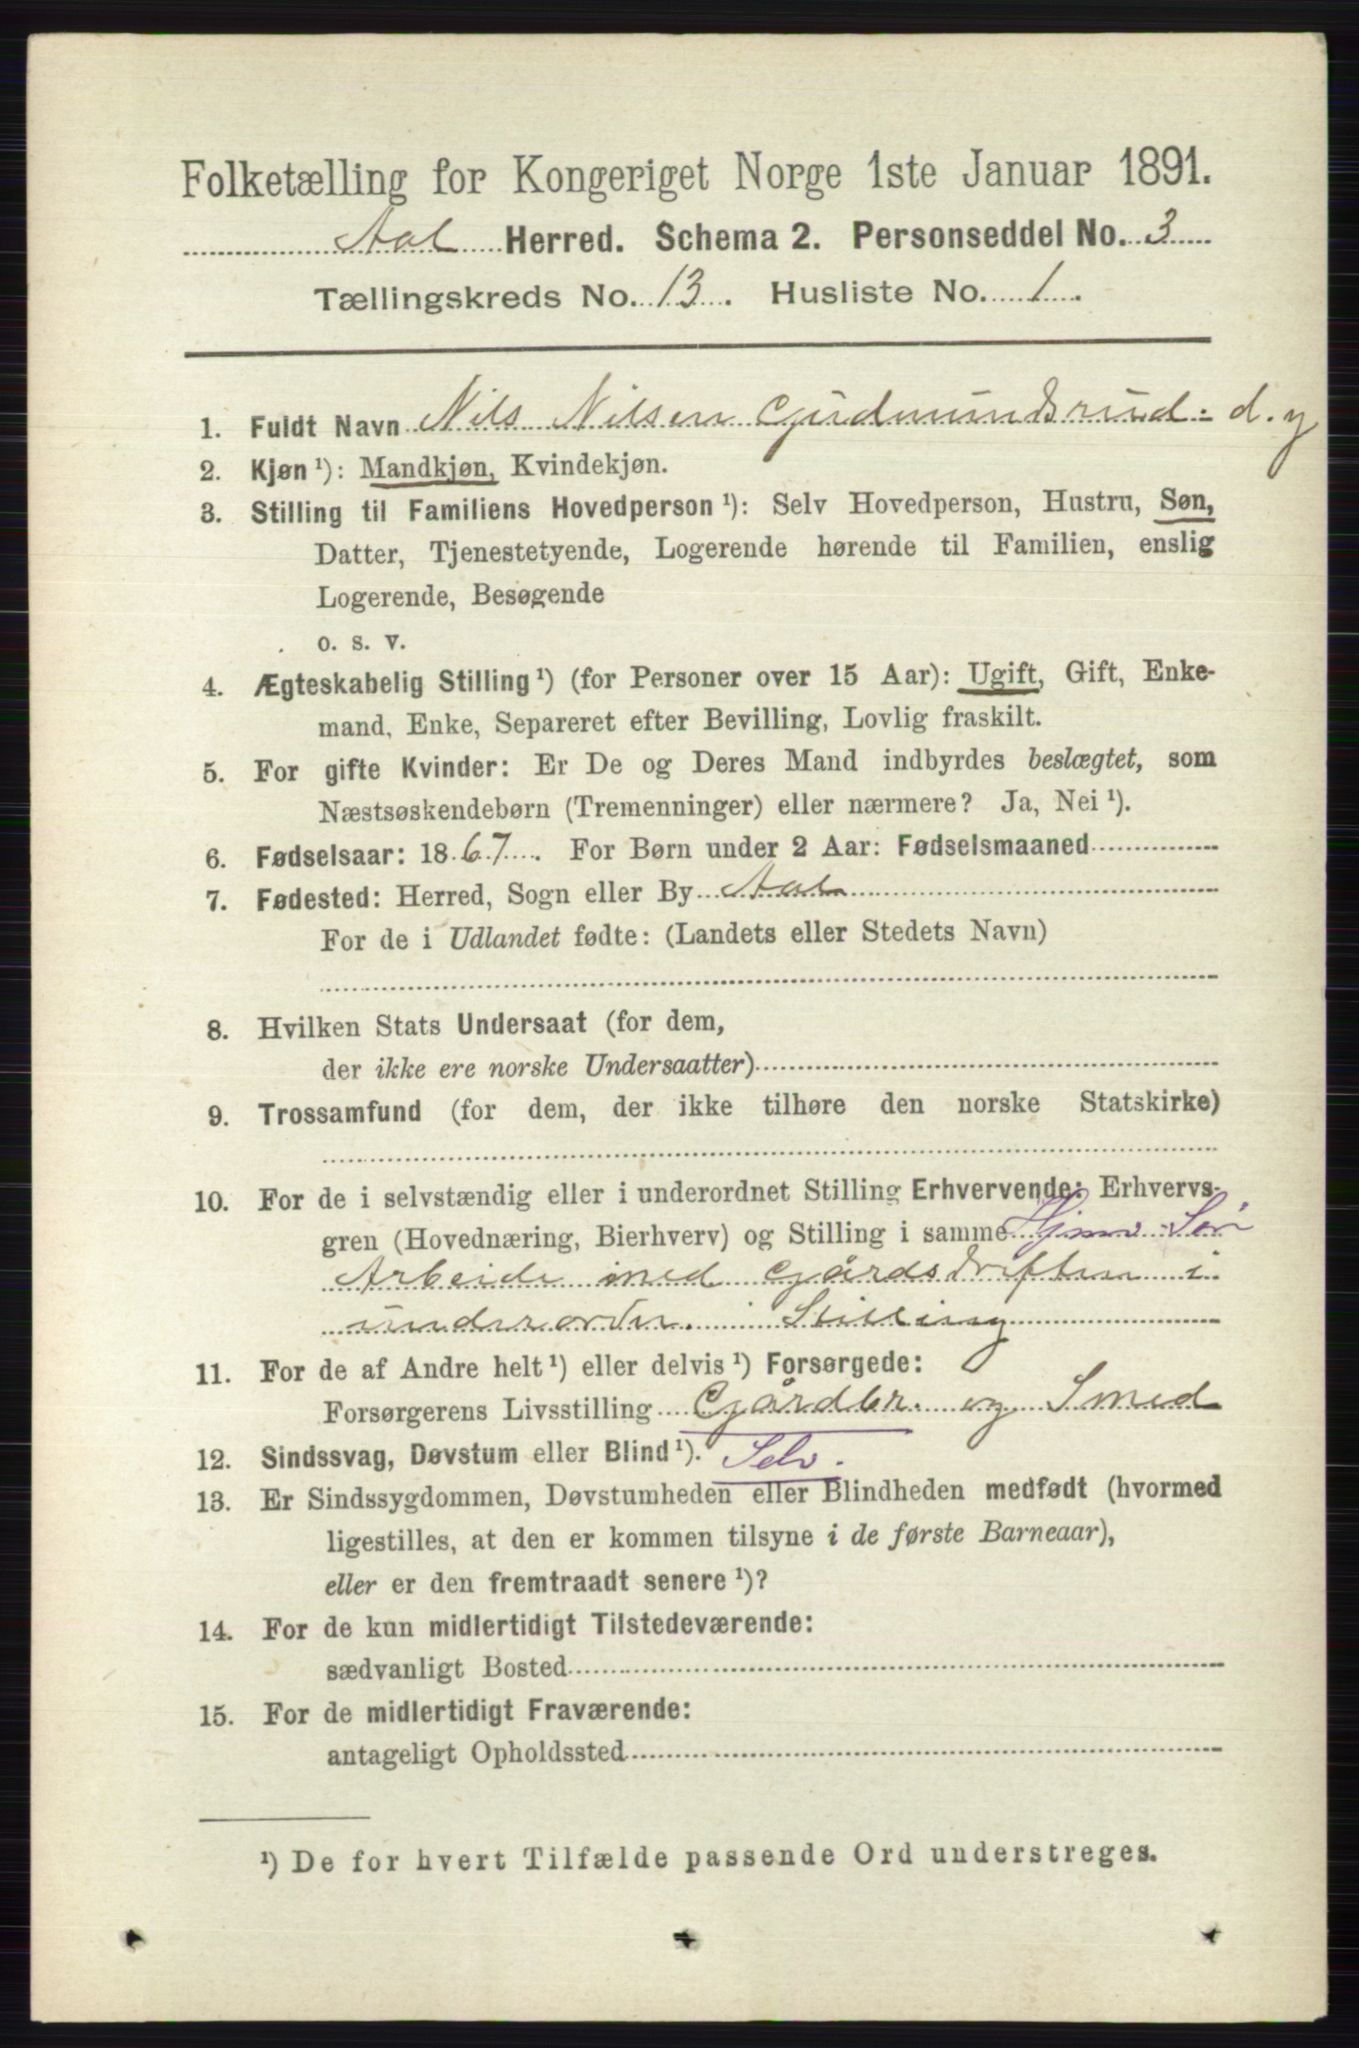 Folketælling for Kongeriget Norge 1ste Januar 1891.
Aal Herred. Schema 2. Personseddel No. 3
Tællingskreds No. 13. Husliste No. 1.
1. Fuldt Navn Nils Nilsen Gudmundsrud. d. y
2. Kjøn ¹): Mandkjøn, Kvindekjøn.
3. Stilling til Familiens Hovedperson ¹): Selv Hovedperson, Hustru, Søn,
Datter, Tjenestetyende, Logerende hørende til Familien, enslig
Logerende, Besøgende
o. s. v.
4. Ægteskabelig Stilling ¹) (for Personer over 15 Aar): Ugift, Gift, Enke-
mand, Enke, Separeret efter Bevilling, Lovlig fraskilt.
5. For gifte Kvinder: Er De og Deres Mand indbyrdes beslægtet, som
Næstsøskendebørn (Tremenninger) eller nærmere? Ja, Nei ¹).
6. Fødselsaar: 1867. For Børn under 2 Aar: Fødselsmaaned
7. Fødested: Herred, Sogn eller By Aal
For de i Udlandet fødte: (Landets eller Stedets Navn)
8. Hvilken Stats Undersaat (for dem,
der ikke ere norske Undersaatter)
9. Trossamfund (for dem, der ikke tilhøre den norske Statskirke)
10. For de i selvstændig eller i underordnet Stilling Erhvervende: Erhvervs-
gren (Hovednæring, Bierhverv) og Stilling i samme Hjmv. Søn
Arbeide med Gårdsdriften i
underordn. Stilling
11. For de af Andre helt ¹) eller delvis ¹) Forsørgede:
Forsørgerens Livsstilling Gårdbr. og Smed
12. Sindssvag, Døvstum eller Blind ¹). Selv.
13. Er Sindssygdommen, Døvstumheden eller Blindheden medfødt (hvormed
ligestilles, at den er kommen tilsyne i de første Barneaar),
eller er den fremtraadt senere ¹)?
14. For de kun midlertidigt Tilstedeværende:
sædvanligt Bosted
15. For de midlertidigt Fraværende:
antageligt Opholdssted
¹) De for hvert Tilfælde passende Ord understreges.